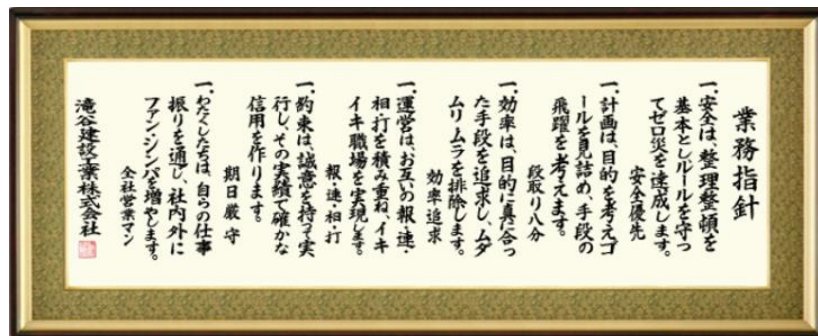 業務指針
一、安全は、整理整頓を
基本としルールを守っ
てゼロ災を達成します。
安全優先
一、計画は、目的を考えゴ
ールを見詰め、手段の
飛躍を考えます。
段取り八分
一、効率は、目的に真に合っ
た手段を追求し、ムダ
ムリムラを排除します。
効率追求
一、運営は、お互いの報・連・
相・打を積み重ね、イキ
イキ職場を実現します。
報・連・相・打
一、約束は、誠意を持って実
行し、その実績で確かな
信用を作ります。
期日厳守
一、わたくしたちは、自らの仕事
振りを通し、社内外に
ファン・シンパを増やします。
全社営業マン
滝谷建設工業株式会社